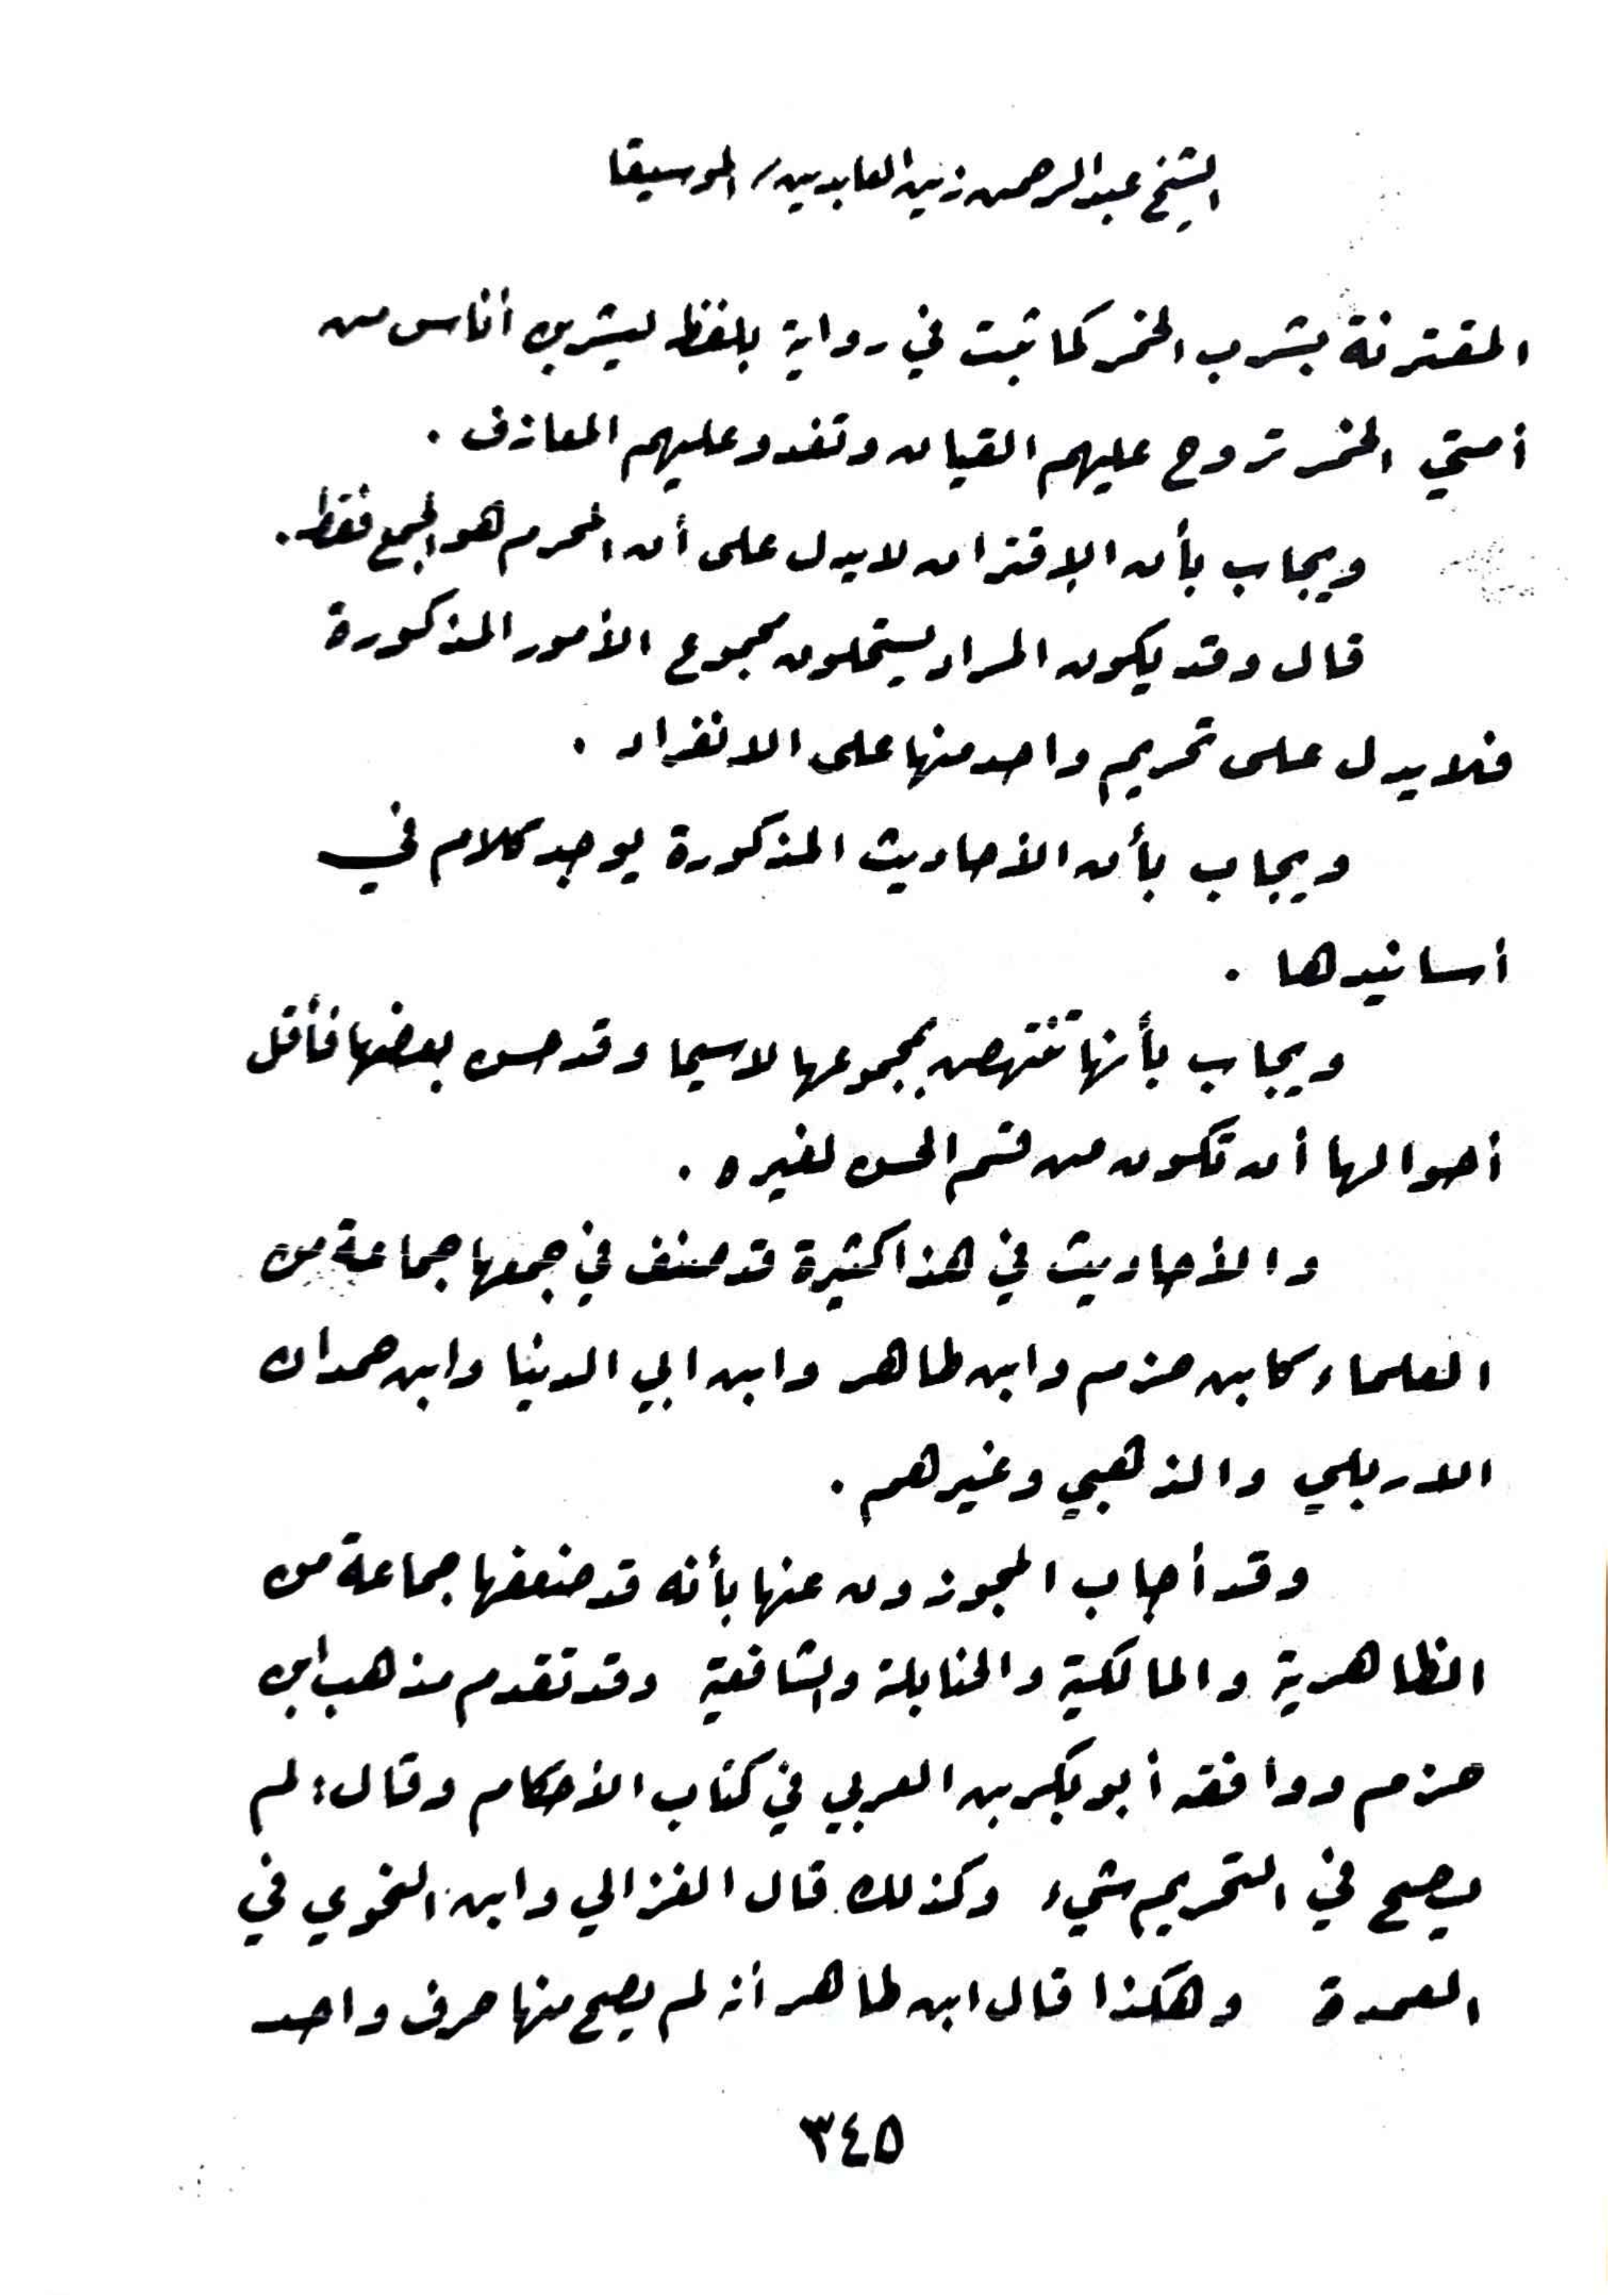 الشيخ عبد الرحمن زين العابدين / الموسيقا
المقترنة بشرب الخمر كما ثبت في رواية بلفظ ليشربن أناس من
أمتي الخمر تروح عليهم القيان وتغدو عليهم المعازف .
ويجاب بأن الإقتران لا يدل على أن المحرم هو الجمع فقط .
قال وقد يكون المراد يستحلون مجموع الأمور المذكورة
فلا يدل على تحريم واحد منها على الانفراد .
ويجاب بأن الأحاديث المذكورة يوجد كلام في
أسانيدها .
ويجاب بأنها تنتهض بمجموعها لاسيما وقد حسن بعضها فأقل
أحوالها أن تكون من قسم الحسن لغيره .
والأحاديث في هذا كثيرة قد صنف في جمعها جماعة من
العلماء كابن حزم وابن طاهر وابن ابي الدنيا وابن حمدان
الاربلي والذهبي وغيرهم .
وقد أجاب المجوزون عنها بأنه قد ضعفها جماعة من
الظاهرية والمالكية والحنابلة والشافعية وقد تقدم مذهب ابن
حزم ووافقه أبو بكر بن العربي في كتاب الأحكام وقال : لم
يصح في التحريم شيء وكذلك قال الغزالي وابن النحوي في
العمدة وهكذا قال ابن طاهر أنه لم يصح منها حرف واحد
٣٤٥